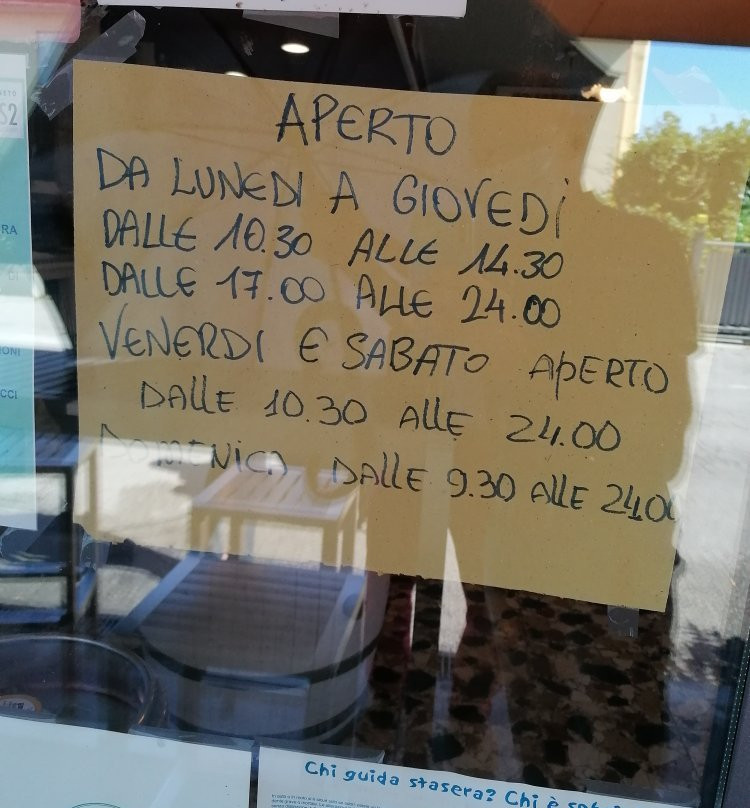 APERTO
DA LUNEDI A GIOVEDÌ
DALLE 10.30 ALLE 14.30
DALLE 17.00 ALLE 24.00
VENERDI E SABATO APERTO
DALLE 10.30 ALLE 24.00
DOMENICA DALLE 9.30 ALLE 24.00
S2
RA
IONI
CCI
Chi guida stasera? Chi è